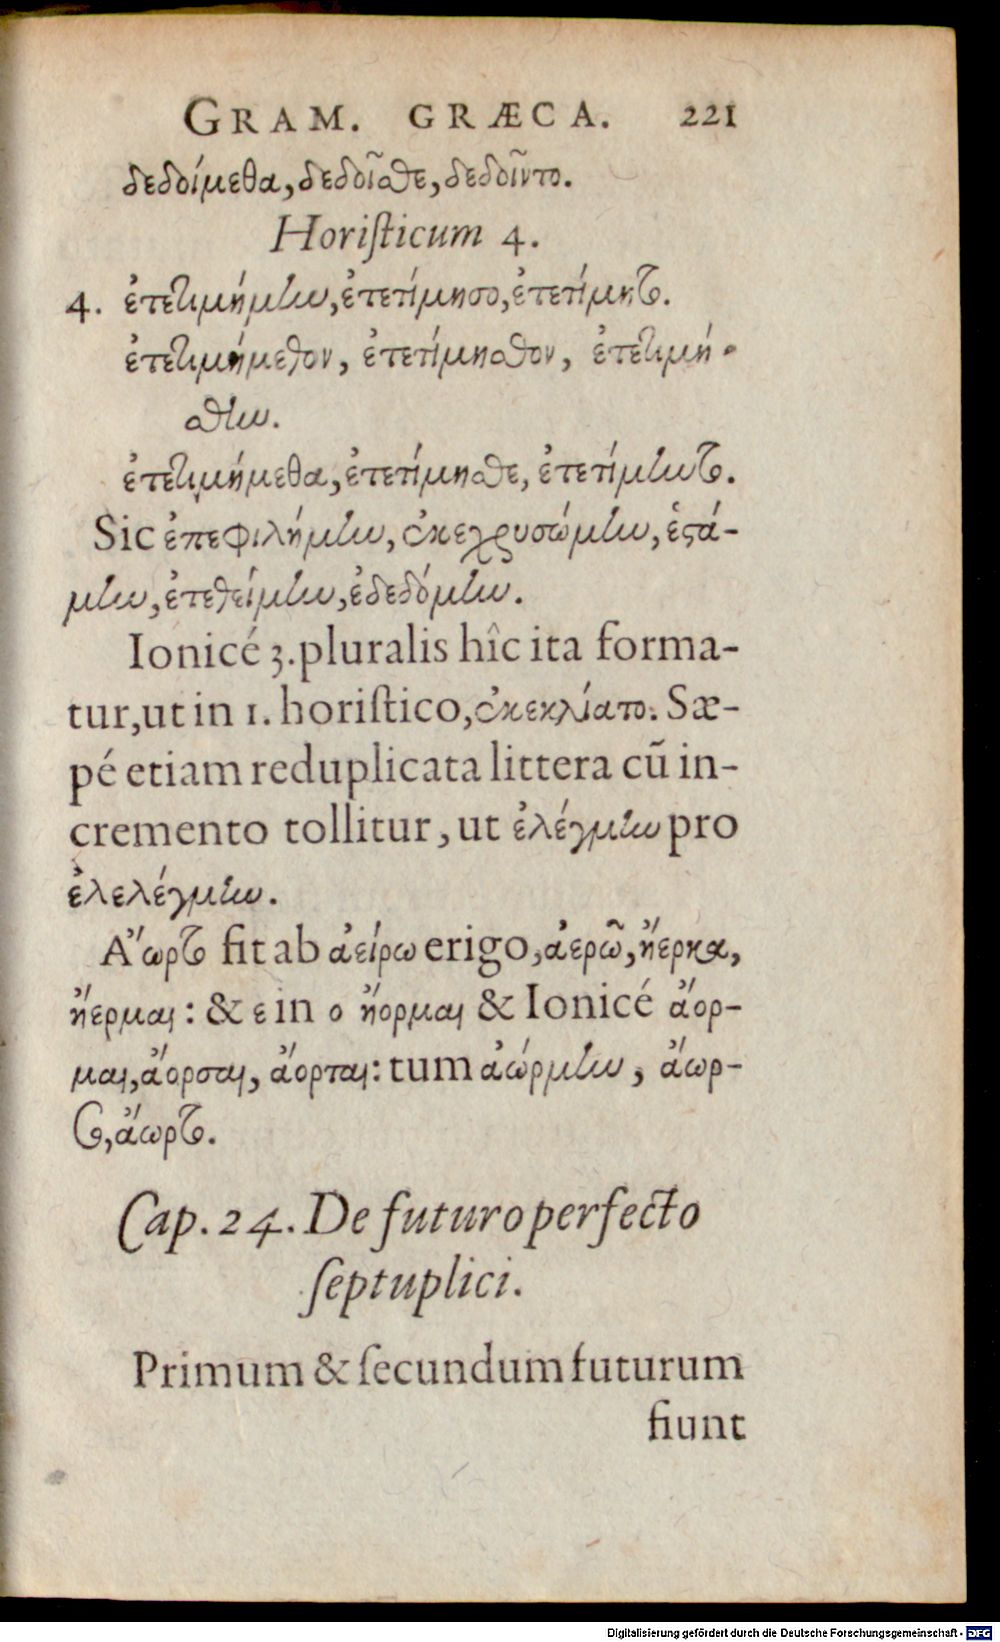 GRAM. GRÆCA. 221
δεδοίμεθα, δεδοῖσθε, δεδοῖντο.
Horiſticum 4.
4. ἐτετιμήμην, ἐτετίμησο, ἐτετίμητο.
ἐτετιμήμεθον, ἐτετίμησθον, ἐτετιμή-
σθην.
ἐτετιμήμεθα, ἐτετίμησθε, ἐτετίμηντο.
Sic ἐπεφιλήμην, ἐκεχρυσώμην, ἑςά-
μην, ἐτεθείμην, ἐδεδόμην.
Ionicé 3. pluralis hîc ita forma-
tur, ut in 1. horiſtico, ἐκεκλίατο. Sæ-
pé etiam reduplicata littera cū in-
cremento tollitur, ut ἐλέγμην pro
ἐλελέγμην.
Ἄωρτο fit ab ἀείρω erigo, ἀερῶ, ἤερκα,
ἤερμαι: & ε in ο ἤορμαι & Ionicé ἄορ-
μαι, ἄορσαι, ἄορται: tum ἀώρμην, ἄωρ-
σο, ἄωρτο.
Cap. 24. De futuro perfecto
ſeptuplici.
Primum & ſecundum futurum
fiunt
Digitalisierung gefördert durch die Deutsche Forschungsgemeinschaft - DFG